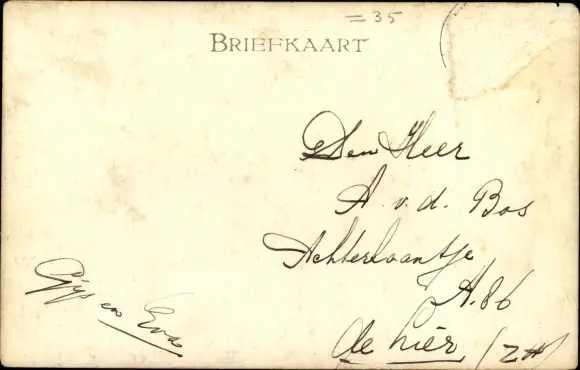 =35
BRIEFKAART
Den Heer
A. v. d. Bos
Achterlaantje
A. 86
de Lier (ZH)
Gijs en Eva